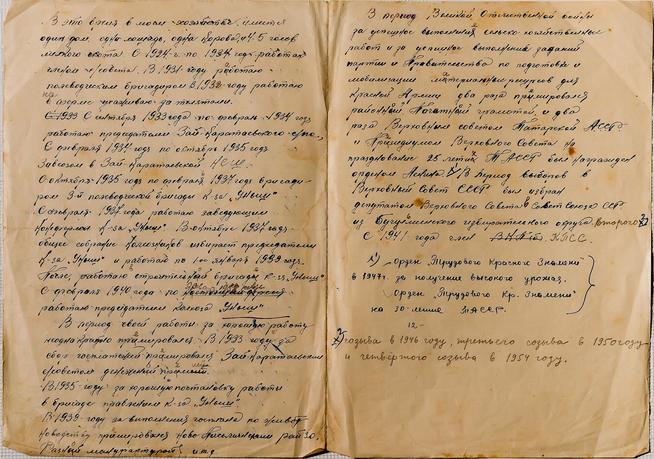 В это время в моем хозяйстве имется
один дом, одна лошадь, одна корова и 4-5 голов
мелкого скота. С 1924 г. по 1931 год работал
членом с/совета. В 1931 году работаю
полеводческим бригадиром В 1932 году работаю
на
С 1933 С октября 1933 года по февраль 1934 год
работаю председателем Зай-Каратаевского с/по.
С февраля 1934 года по октябрь 1935 года
Завхозом в Зай Каратаевской НСШ.
С октября 1935 года по февраль 1937 года бригади-
ром 3-й полеводческой бригады К-за "Уныш"
С февраля 1937 года работаю заведующим
конефермой К-за "Уныш". В октябре 1937 года
общее собрание колхозников избирает председателем
К-за "Уныш" и работаю по 1ое января 1939 года.
После работаю строительной бригады К-за "Уныш"
С февраля 1940 года по
работаю председателем колхоза "Уныш"
В период своей работы за хорошую работу
неоднократно премировался. В 1933 году за
сбор госплатежей премировался Зай Каратаевским
с/советом денежной премией.
В 1935 году за хорошую постановку работы
в бригаде правлением К-за "Уныш"
В 1939 году за выполнения госплана по живот
новодству премировался Ново Письмянским рай ЗО.
Разный мануфактурой и т.д
В период Великой Отечественной войны
за успешное выполнения сельско-хозяйственных
работ и за успешное выполнения заданий
партии и Правительства по подготовки и
мобилизации материальных ресурсов для
Красной Армии два раза премировался
районной Почетной грамотой, и два
раза Верховным советом Татарской АССР
и Президиумом Верховного Совета на
празднование 25 летия ТАССР был награжден
орденом Ленина. В период выборов в
Верховный Совет СССР был избран
депутатом Верховного Совета Совет Союза ССР
из Бугульминского избирательного округа. второго
С 1941 года член КПСС.
Орден "Трудового Красного Знамени"
в 1948 г. за получение высокого урожая.
Орден "Трудового Кр. Знамени"
на 30-летие ТАССР.
12-
созыва в 1946 году, третьего созыва в 1950 году
и четвёртого созыва в 1954 году.